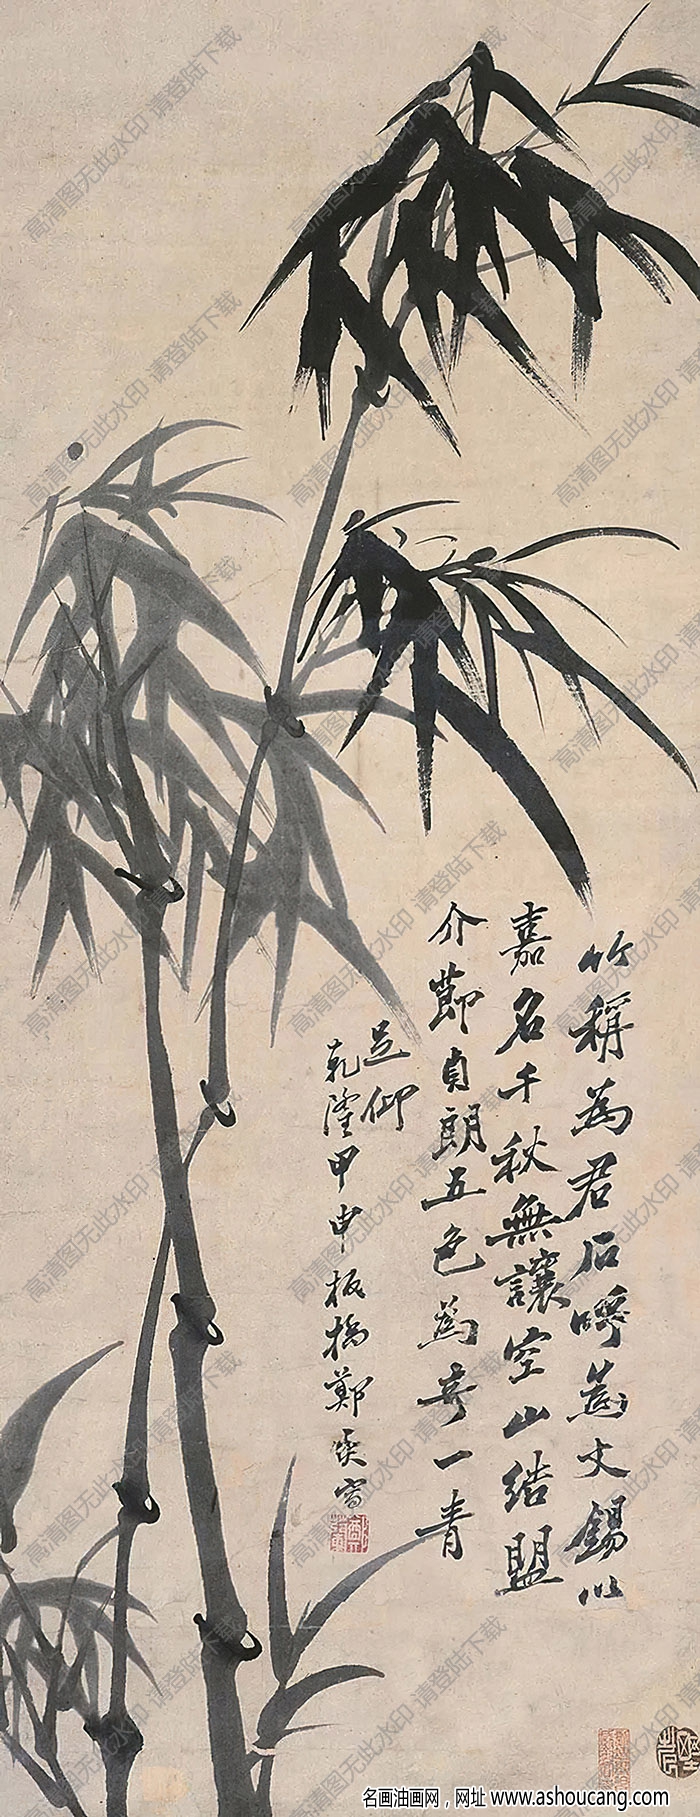 竹稱為君石呼為丈錫以
嘉名千秋無讓空山結盟
介節貞朗五色為奇一青
足仰
乾隆甲申板橋鄭燮寫
高清图无此水印 请登陆下载
名画油画网，网址 www.ashoucang.com